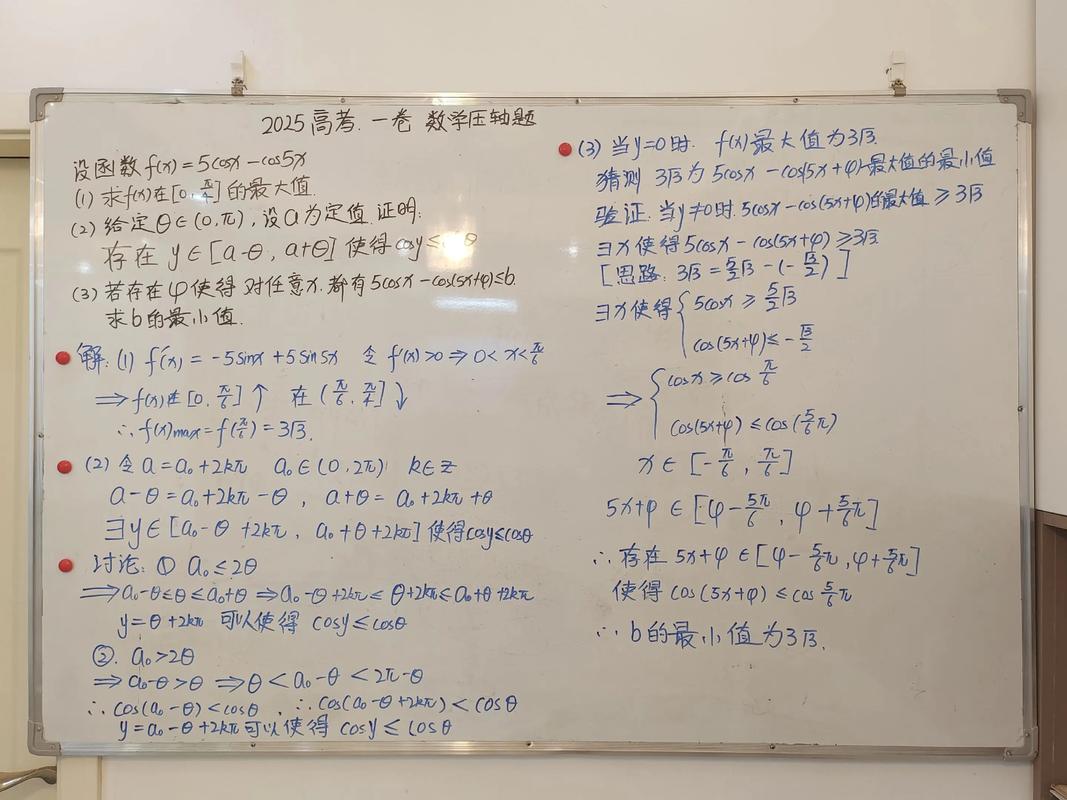 2025高考.一卷 数学压轴题
设函数f(x)=5cosx-cos5x
(1) 求f(x)在[0,π/4]的最大值.
(2) 给定θ∈(0,π),设a为定值.证明:
存在y∈[a-θ, a+θ]使得cosy≤ θ
(3) 若存在φ使得 对任意x.都有5cosx-cos(5x+φ)≤b.
求b的最小值.
解: (1) f'(x)=-5sinx+5sin5x 令f'(x)>0⇒0<x<π/6
⇒f(x)在[0,π/6]↑ 在(π/6,π/4]↓
∴f(x)max=f(π/6)=3√3.
(2) 令a=a₀+2kπ a₀∈(0,2π) k∈z
a-θ=a₀+2kπ-θ, a+θ=a₀+2kπ+θ
∃y∈[a₀-θ+2kπ, a₀+θ+2kπ]使得cosy≤cosθ
讨论: ① a₀≤2θ
⇒a₀-θ≤θ≤a₀+θ⇒a₀-θ+2kπ≤θ+2kπ≤a₀+θ+2kπ
y=θ+2kπ 可以使得 cosy≤cosθ
②. a₀>2θ
⇒a₀-θ>θ⇒θ<a₀-θ<2π-θ
∴cos(a₀-θ)<cosθ.∴cos(a₀-θ+2kπ)<cosθ
y=a₀-θ+2kπ可以使得 cosy≤cosθ
(3) 当y=0时. f(x)最大值为3√3
猜测 3√3为5cosx-cos(5x+φ)最大值的最小值
验证:当y≠0时.5cosx-cos(5x+φ)的最大值≥3√3
∃x使得5cosx-cos(5x+φ)≥3√3
[思路: 3√3=5/2√3-(-√3/2)]
∃x使得{5cosx≥5/2√3
cos(5x+φ)≤-√3/2
⇒{cosx≥cosπ/6
cos(5x+φ)≤cos(5/6π)
x∈[-π/6,π/6]
5x+φ∈[φ-5π/6,φ+5/6π]
∴存在5x+φ∈[φ-5/6π,φ+5/6π]
使得cos(5x+φ)≤cos5/6π
∴b的最小值为3√3.